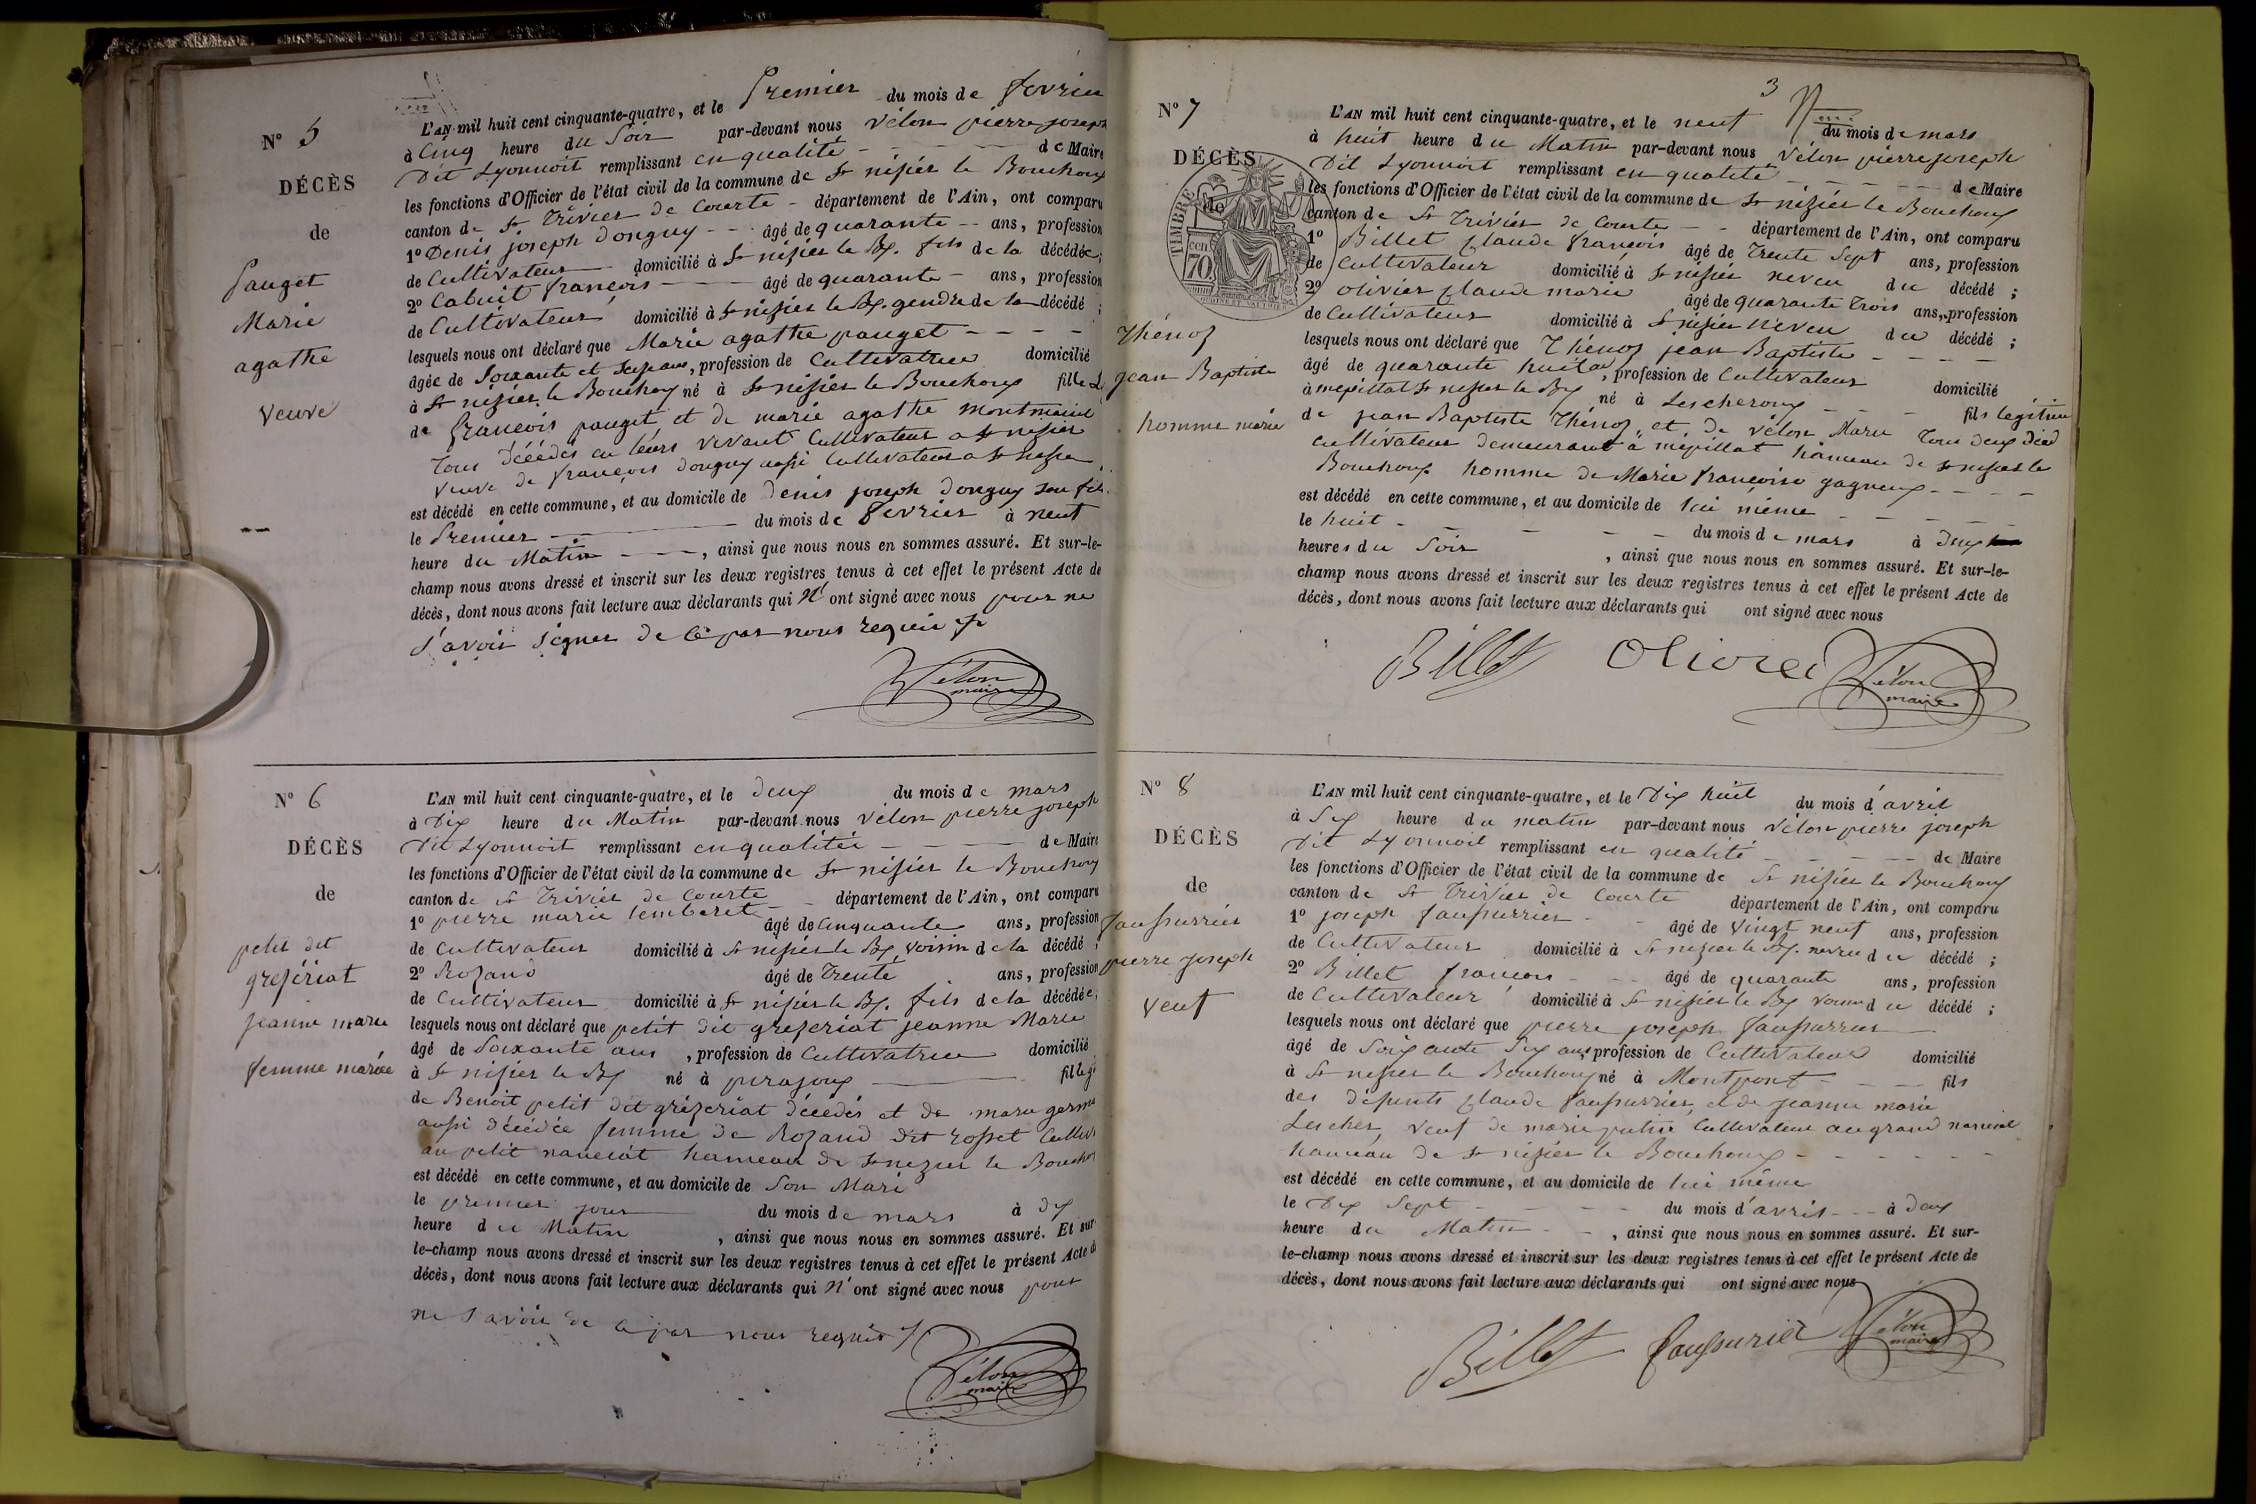 N° 5
DÉCÈS
de
pauget
Marie
agathe
veuve
L'AN mil huit cent cinquante-quatre, et le Premier du mois de fevrier
à Cinq heure du Soir par-devant nous vélon pierre joseph
Dit Lyonnoit remplissant en qualité de Maire
les fonctions d'Officier de l'état civil de la commune de St nisier le Bouchoux
canton de St Trivier de Courte département de l'Ain, ont comparu
1° Denis joseph donguy âgé de quarante ans, profession
de Cultivateur domicilié à St nisier le Bx. fils de la décédée;
2° Cabuit françois âgé de quarante ans, profession
de Cultivateur domicilié à St nisier le Bx. gendre de la décédé ;
lesquels nous ont déclaré que Marie agathe pauget
âgée de Soixante et ans, profession de Cultivatrice domicilié
à St nisier le Bouchoux né à St nisier le Bouchoux fille
de françois pauget et de marie agathe
Tous décédés en leurs vivant Cultivateur a St nisier
veuve de françois donguy aussi Cultivateur a St nisier
est décédé en cette commune, et au domicile de Denis joseph donguy son fils
le Premier du mois de fevrier à neuf
heure du Matin , ainsi que nous nous en sommes assuré. Et sur-le-
champ nous avons dressé et inscrit sur les deux registres tenus à cet effet le présent Acte de
décès, dont nous avons fait lecture aux déclarants qui n' ont signé avec nous pour ne
Savoir signer de ce par nous requis
Vélon
maire
N° 6
DÉCÈS
de
petit dit
grezériat
jeanne marie
femme mariée
L'AN mil huit cent cinquante-quatre, et le deux du mois de mars
à Dix heure du Matin par-devant nous vélon pierre joseph
Dit Lyonnoit remplissant en qualitée de Maire
les fonctions d'Officier de l'état civil de la commune de St nisier le Bouchoux
canton de St Trivier de Courte département de l'Ain, ont comparu
1° pierre marie âgé de Cinquante ans, profession
de Cultivateur domicilié à St nisier le Bx, voisin de la décédé ;
2° Rozand âgé de Trente ans, profession
de Cultivateur domicilié à St nisier le Bx. fils de la décédée,
lesquels nous ont déclaré que petit dit grezeriat jeanne Marie
âgé de Soixante ans , profession de Cultivatrice domicilié
à St nisier le Bx né à pirajoux fille
de Benoit petit dit grézeriat décédés et de marie
aussi décédée femme de Rozand dit rosset
au petit hameau de St nezier le Bouchoux
est décédé en cette commune, et au domicile de Son Mari
le premier jour du mois de mars à dix
heure du Matin , ainsi que nous nous en sommes assuré. Et sur-
le-champ nous avons dressé et inscrit sur les deux registres tenus à cet effet le présent Acte de
décès, dont nous avons fait lecture aux déclarants qui n' ont signé avec nous pour
ne Savoir de ce par nous requis
Vélon
maire
3
N° 7
DÉCÈS
de
TIMBRE
cen 70
Thénoz
jean Baptiste
homme marié
L'AN mil huit cent cinquante-quatre, et le neuf du mois de mars
à huit heure du Matin par-devant nous Vélon pierre joseph
Dit Lyonnoit remplissant en qualité de Maire
les fonctions d'Officier de l'état civil de la commune de St nizier le Bouchoux
canton de St Trivier de Courte département de l'Ain, ont comparu
1° Billet Claude françois âgé de Trente Sept ans, profession
de Cultivateur domicilié à St nisier neveu du décédé ;
2° olivier Claude marie âgé de quarante Trois ans, profession
de Cultivateur domicilié à St nisier neveu du décédé ;
lesquels nous ont déclaré que Thénoz jean Baptiste
âgé de quarante huit , profession de Cultivateur domicilié
à mépillat St nisier le Bx né à Lescheroux fils légitime
de jean Baptiste Thénoz, et de Vélon Marie Tous deux
cultivateur demeurant à mépillat hameau de St nisier le
Bouchoux homme de Marie françoise gagneux
est décédé en cette commune, et au domicile de lui même
le huit du mois de mars à deux
heures du Soir , ainsi que nous nous en sommes assuré. Et sur-le-
champ nous avons dressé et inscrit sur les deux registres tenus à cet effet le présent Acte de
décès, dont nous avons fait lecture aux déclarants qui ont signé avec nous
Billet Olivier Vélon
maire
N° 8
DÉCÈS
de
faussurrier
pierre joseph
veuf
L'AN mil huit cent cinquante-quatre, et le Dix huit du mois d'avril
à Six heure du matin par-devant nous vélon pierre joseph
Dit Lyonnoit remplissant en qualité de Maire
les fonctions d'Officier de l'état civil de la commune de St nizier le Bouchoux
canton de St Trivier de Courte département de l'Ain, ont comparu
1° joseph faussurrier âgé de Vingt neuf ans, profession
de Cultivateur domicilié à St nizier le Bx. neveu du décédé ;
2° Billet françois âgé de quarante ans, profession
de Cultivateur domicilié à St nisier le Bx voisin du décédé ;
lesquels nous ont déclaré que pierre joseph faussurrier
âgé de Soixante Six ans profession de Cultivateur domicilié
à St nezier le Bouchoux né à Montpont fils
des défunts Claude faussurrier, et de jeanne marie
Lescher, veuf de marie Cultivateur au grand
hameau de St nisier le Bouchoux
est décédé en cette commune, et au domicile de lui même
le Dix Sept du mois d'avril à Deux
heure du Matin , ainsi que nous nous en sommes assuré. Et sur-
le-champ nous avons dressé et inscrit sur les deux registres tenus à cet effet le présent Acte de
décès, dont nous avons fait lecture aux déclarants qui ont signé avec nous
Billet faussurier Vélon
maire